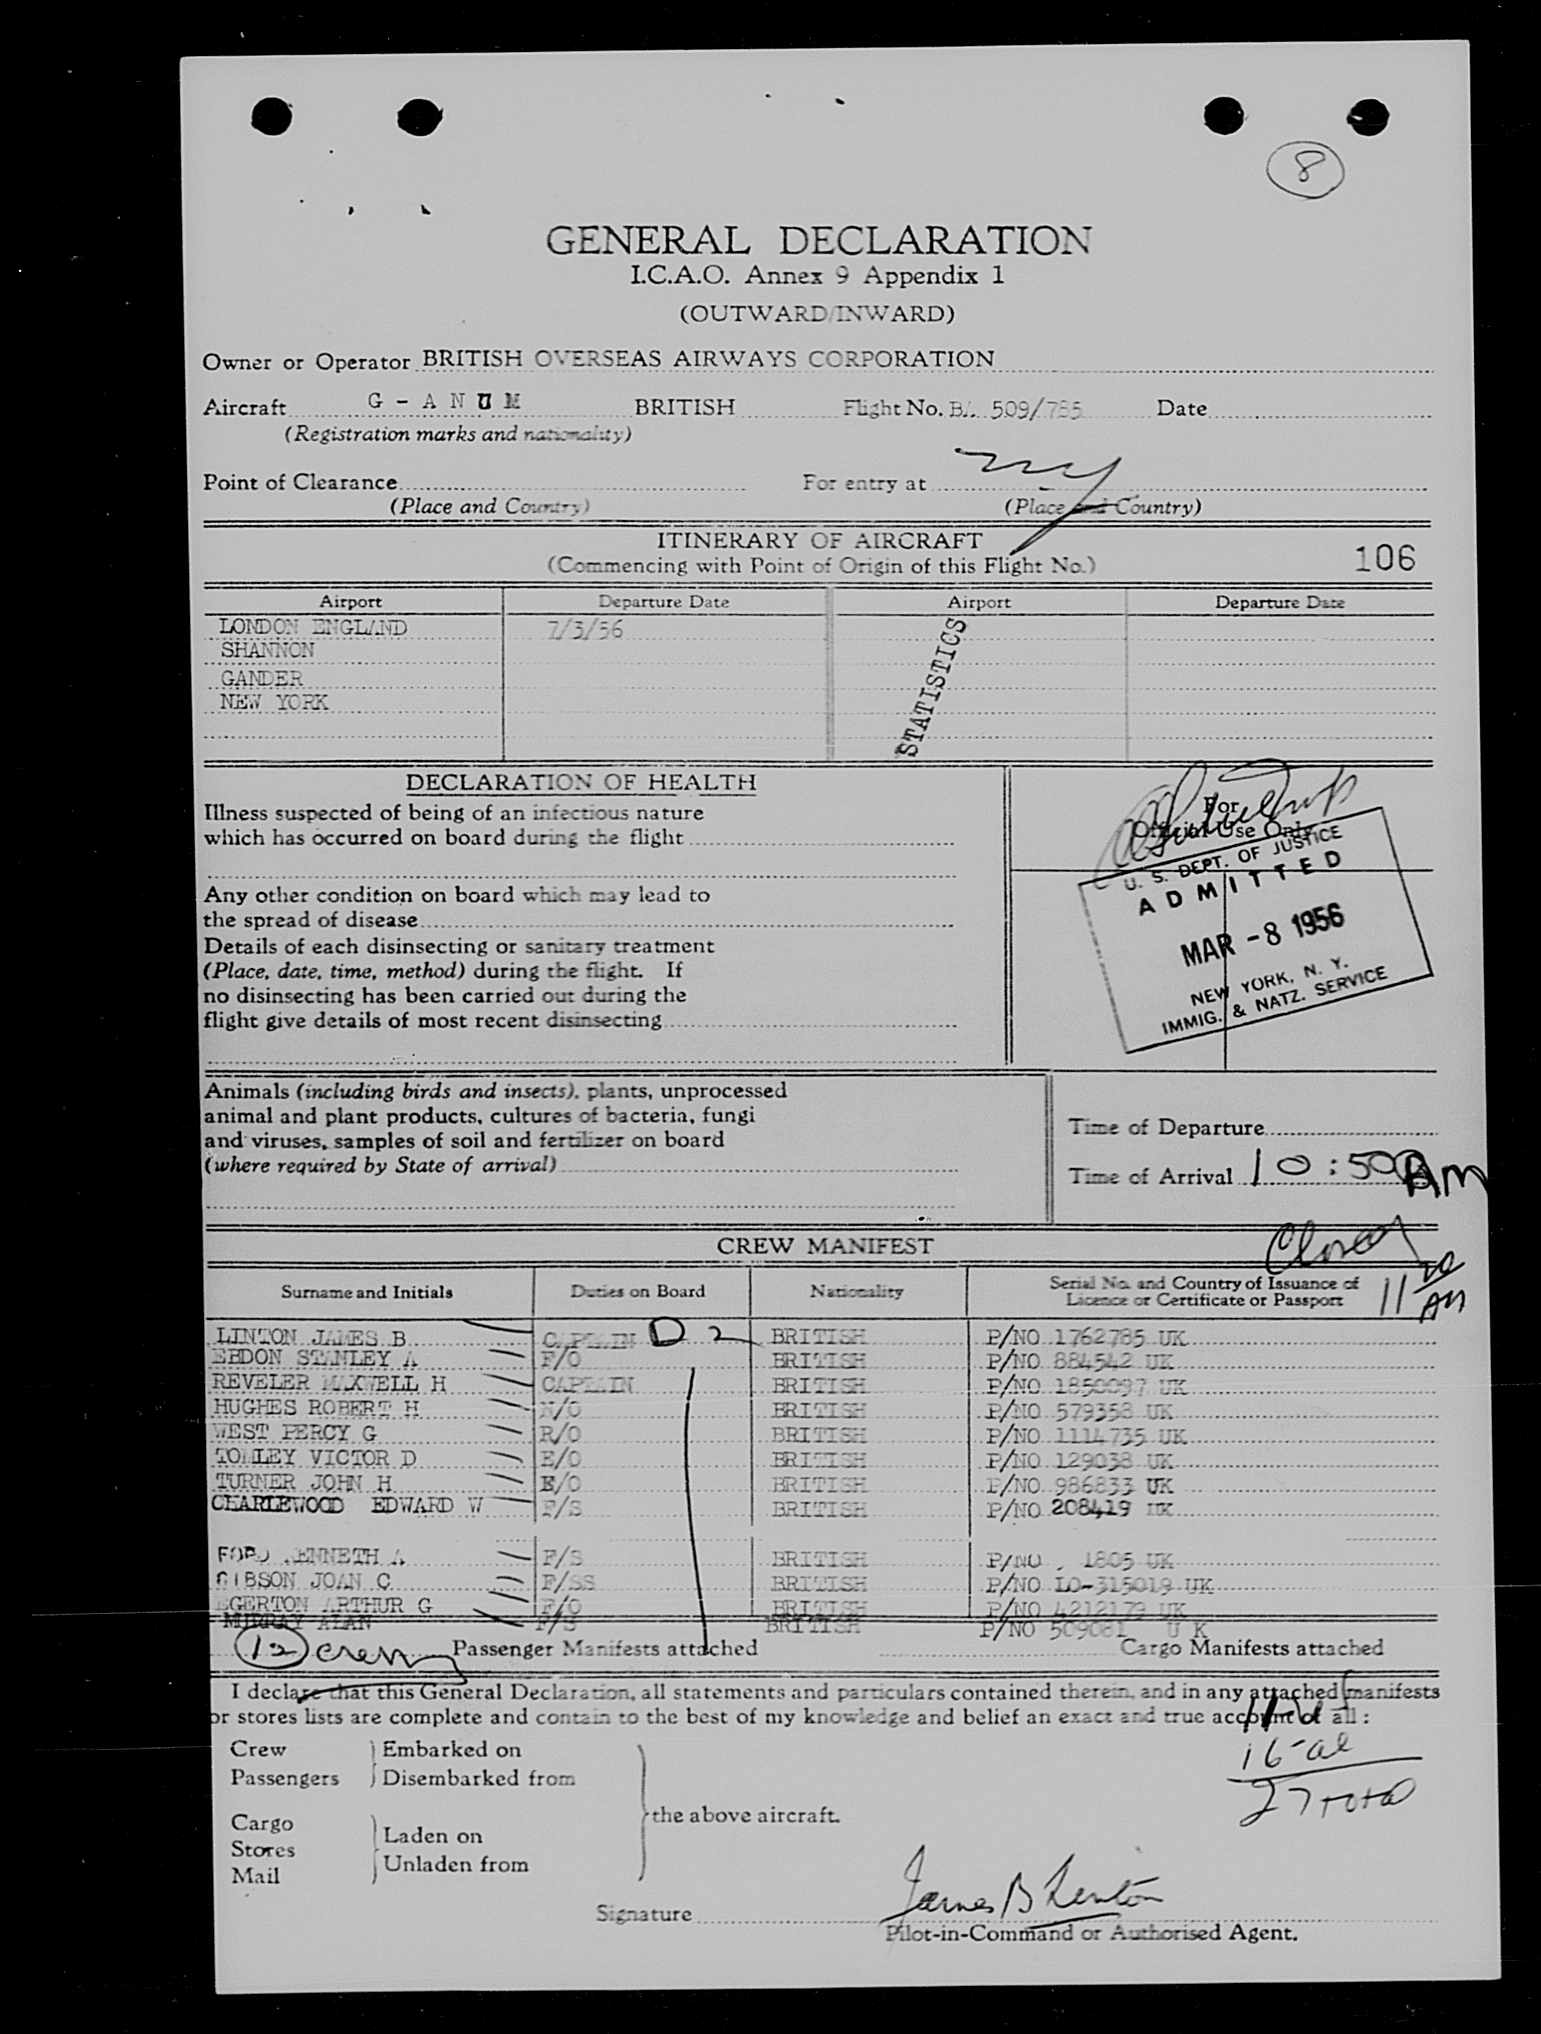 8
GENERAL DECLARATION
I.C.A.O. Annex 9 Appendix 1
(OUTWARD/INWARD)
Owner or Operator BRITISH OVERSEAS AIRWAYS CORPORATION
Aircraft G - A N U M BRITISH Flight No. BA 509/785 Date
(Registration marks and nationality)
Point of Clearance For entry at NY
(Place and Country) (Place and Country)
ITINERARY OF AIRCRAFT
(Commencing with Point of Origin of this Flight No.) 106
Airport Departure Date Airport Departure Date
LONDON ENGLAND 7/3/56
SHANNON
GANDER
NEW YORK
STATISTICS
DECLARATION OF HEALTH
Illness suspected of being of an infectious nature
which has occurred on board during the flight
Any other condition on board which may lead to
the spread of disease
Details of each disinsecting or sanitary treatment
(Place, date, time, method) during the flight. If
no disinsecting has been carried out during the
flight give details of most recent disinsecting
For
Official Use Only
U. S. DEPT. OF JUSTICE
ADMITTED
MAR - 8 1956
NEW YORK, N. Y.
IMMIG. & NATZ. SERVICE
Animals (including birds and insects), plants, unprocessed
animal and plant products, cultures of bacteria, fungi
and viruses, samples of soil and fertilizer on board
(where required by State of arrival)
Time of Departure
Time of Arrival 10:50 AM
CREW MANIFEST
Surname and Initials Duties on Board Nationality Serial No. and Country of Issuance of
Licence or Certificate or Passport
11 20 AM
LINTON JAMES B CAPTAIN D 2 BRITISH P/NO 1762785 UK
EBDON STANLEY A F/O BRITISH P/NO 884542 UK
REVELER MAXWELL H CAPTAIN BRITISH P/NO 1850097 UK
HUGHES ROBERT H N/O BRITISH P/NO 579358 UK
WEST PERCY G R/O BRITISH P/NO 1114735 UK
TOMLEY VICTOR D E/O BRITISH P/NO 129038 UK
TURNER JOHN H E/O BRITISH P/NO 986833 UK
CHARLEWOOD EDWARD W F/S BRITISH P/NO 208419 UK
FORD KENNETH A F/S BRITISH P/NO 1805 UK
GIBSON JOAN C F/SS BRITISH P/NO LO-315019 UK
EGERTON ARTHUR G F/O BRITISH P/NO 4212179 UK
MURRAY ALAN F/S BRITISH P/NO 509081 U K
12 crew Passenger Manifests attached Cargo Manifests attached
I declare that this General Declaration, all statements and particulars contained therein, and in any attached manifests
or stores lists are complete and contain to the best of my knowledge and belief an exact and true account of all :
Crew
Passengers
Embarked on
Disembarked from
16-al
27 total
Cargo
Stores
Mail
Laden on
Unladen from
the above aircraft.
Signature James B Linton
Pilot-in-Command or Authorised Agent.